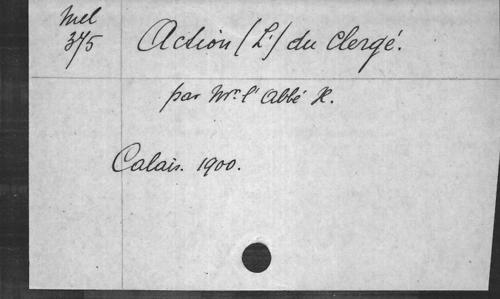 Mel
375
Action (L') du Clergé.
par Mr. l'Abbé X.
Calais. 1900.